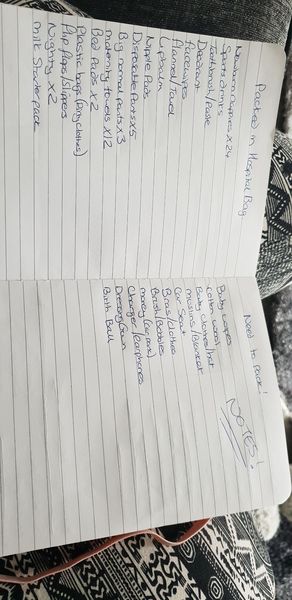 Packed in Hospital Bag
Newborn nappies x 24
Sports drinks
Toothbrush/Paste
Deodorant
Facewipes
Flannel/Towel
Lipbalm
Nipple Pads
Disposable Pants x 5
Big normal pants x 3
Maternity towels x 12
Bed Pads x 2
Plastic bags (Dirty clothes)
Flip flops/slippers
Nighty x 2
Milk Starter pack
Need to pack!
Baby wipes
Cotton wool
Baby clothes/hat
Muslins/Blanket
Car Seat
Bras/clothes
Brush/Bobbles
Money (car park)
Charger/Earphones
Dressing Gown
Birth Ball
NOTES!